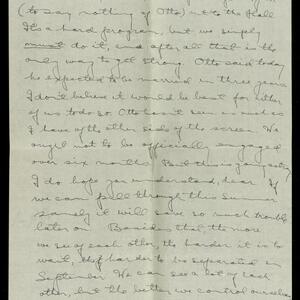 (to say nothing of Otto) not to the Hall
It's a hard program, but we simply
must do it, and after all that is the
only way to get strong. Otto said today
he expected to be married in three years
I don't believe it would be best for either
of us to do so. Otto hasn't seen as much as
I have of the other side of the screen. We
ought not to be officially engaged
over six months. But this is
I do hope you understand, dear. If
we can pull through this summer
sanely it will save so much trouble
later on. Besides that, the more
we see of each other, the harder it is to
wait, & harder to be separated in
September. We can see a lot of each
other, but the better we control ourselves